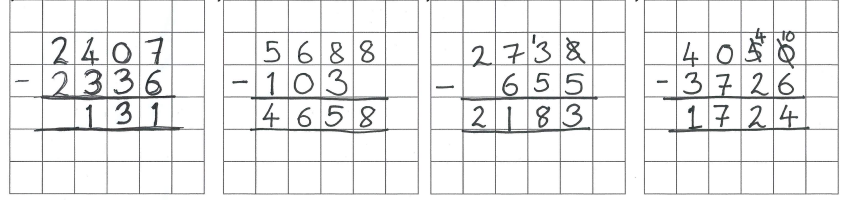 2407
- 2336
131
5688
- 103
4658
27138
- 655
2183
4 10
4050
- 3726
1724